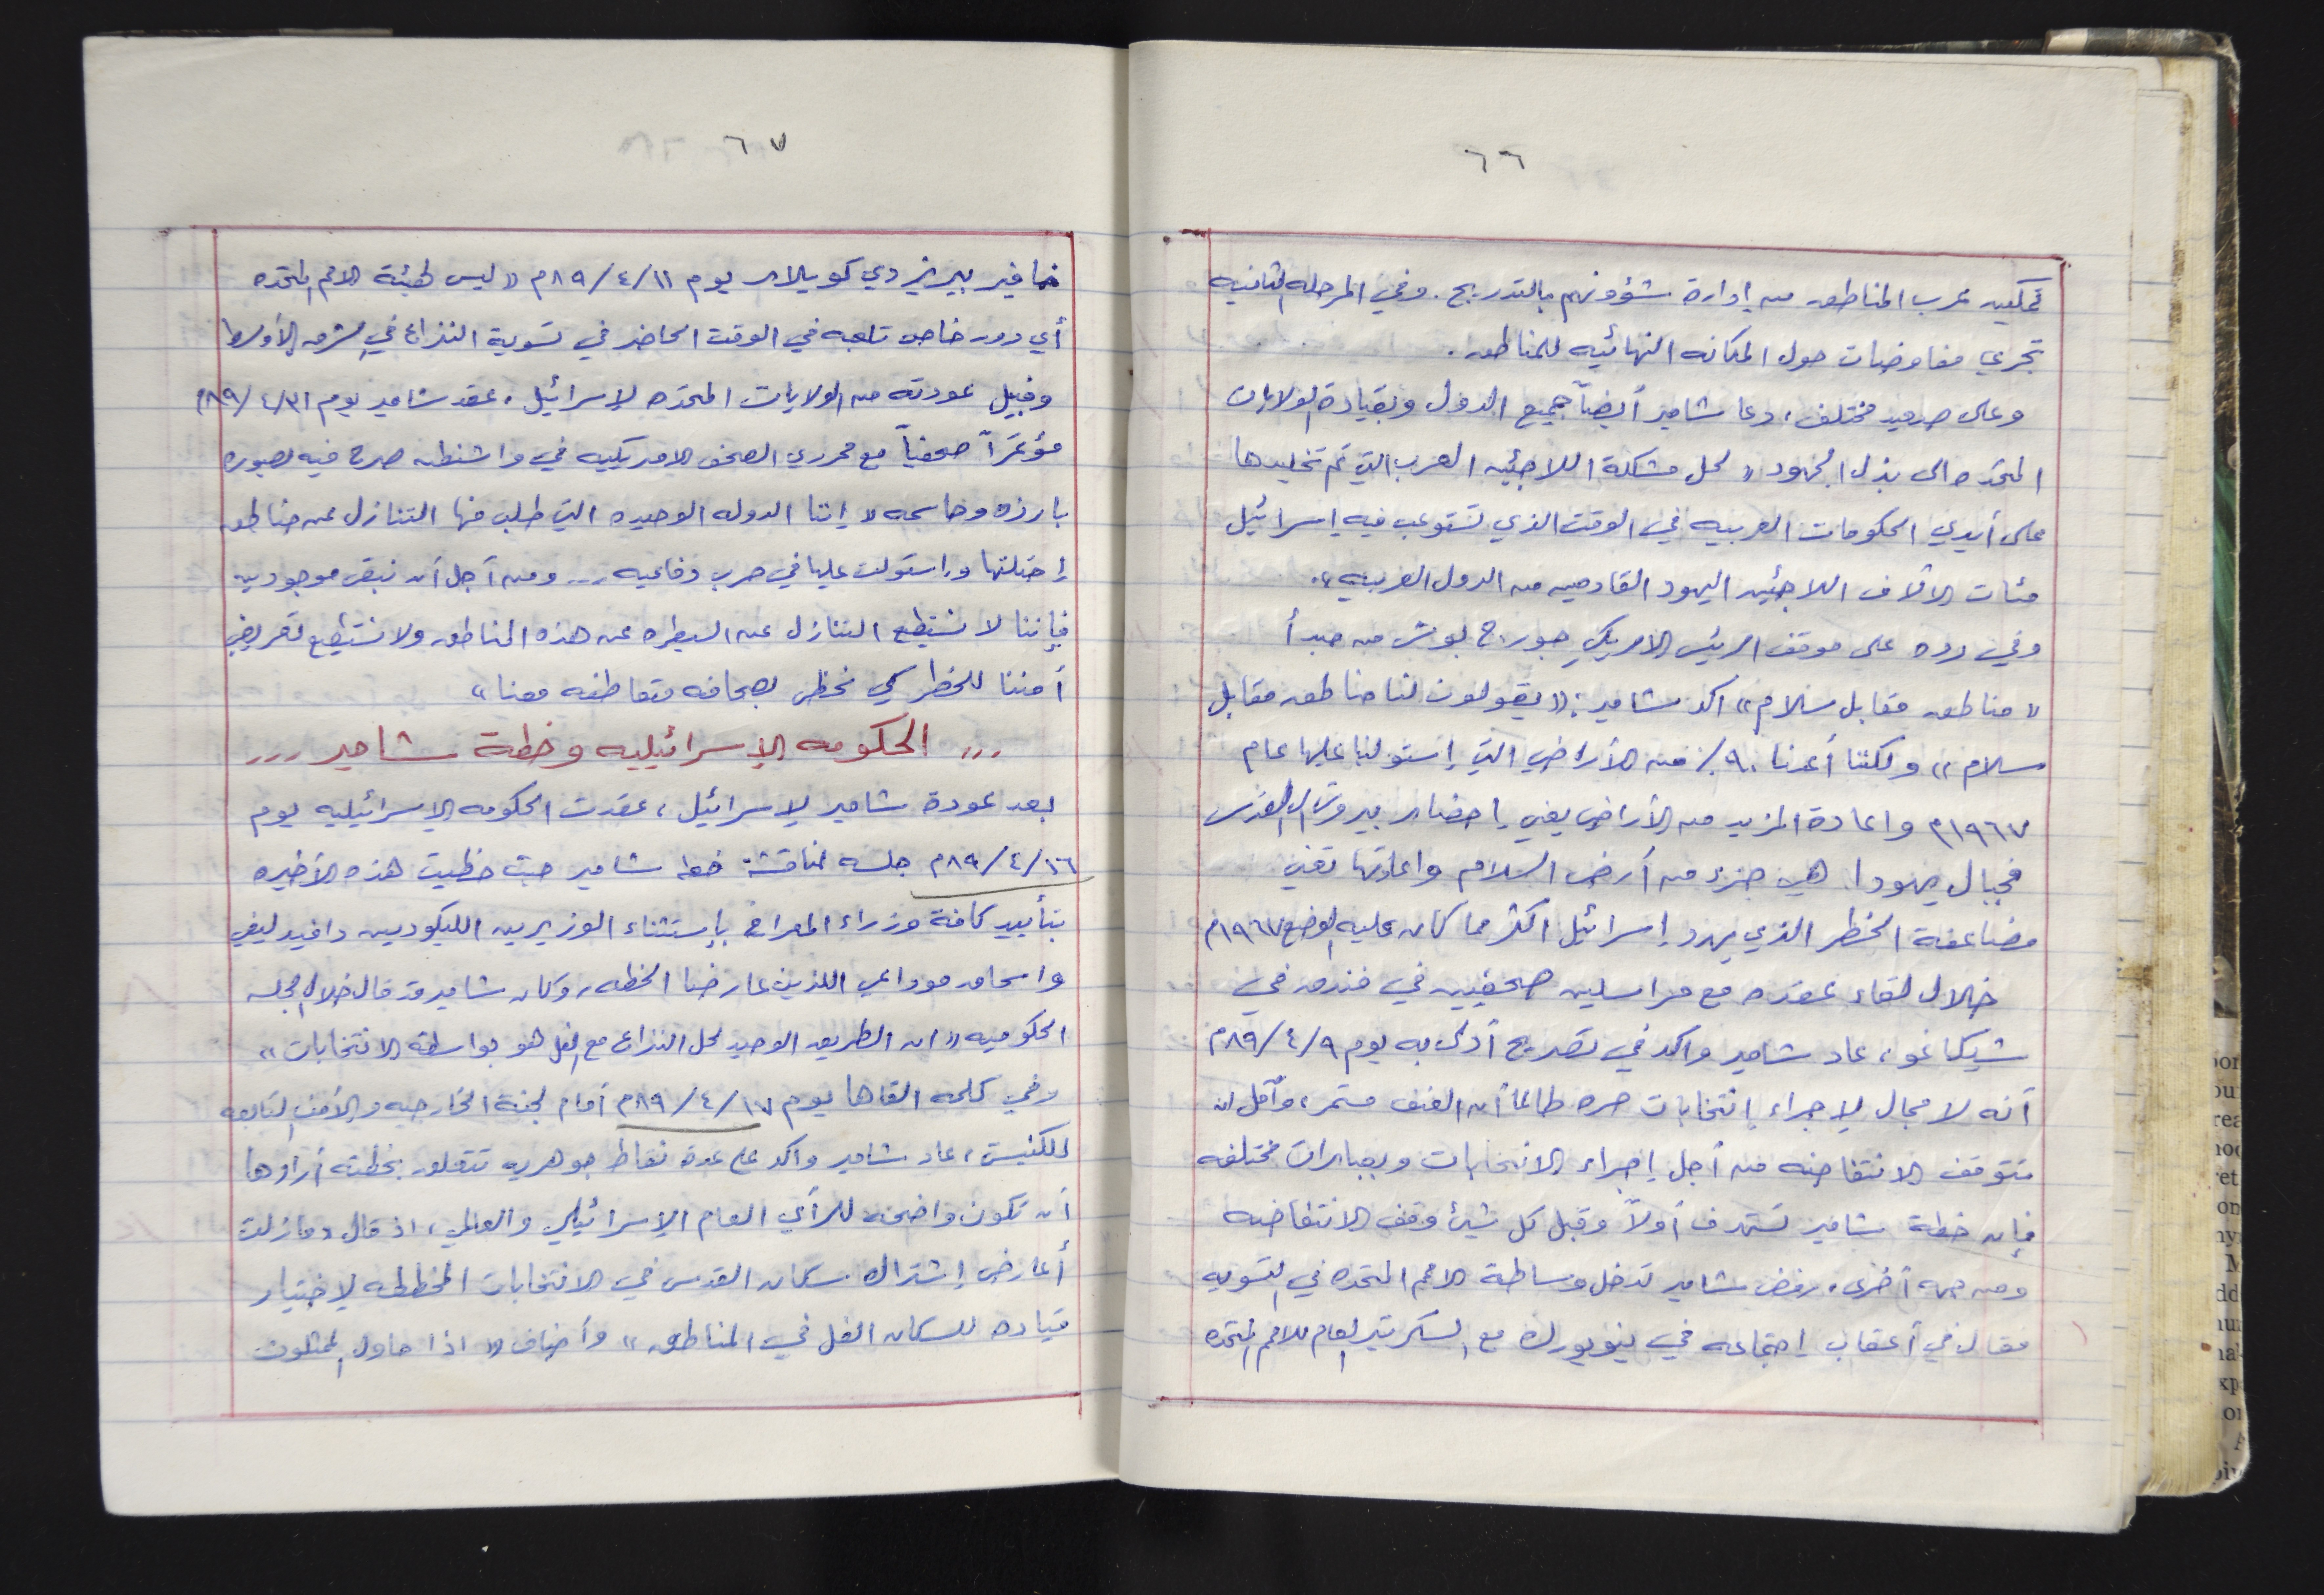 ٦٦
تمكين عرب المناطق من إدارة شؤونهم بالتدريج. وفي المرحله الثانيه
تجري مفاوضات حول المكانه النهائيه للمناطق.
وعلى صعيد مختلف، دعا شامير أيضاً جميع الدول وبقيادة الولايات
المتحده الى بذل الجهود « لحل مشكلة اللاجئين العرب التي تم تخليدها
على أيدي الحكومات العربيه في الوقت الذي تستوعب فيه إسرائيل
مئات الآلاف اللاجئين اليهود القادمين من الدول العربيه ».
وفي رده على موقف الرئيس الامريكي جورج بوش من مبدأ
« مناطق مقابل سلام » اكد شامير: « يقولون لنا مناطق مقابل
سلام » ولكننا أعدنا ٩٠٪ من الأراضي التي إستولينا عليها عام
١٩٦٧م واعادة المزيد من الأراضي يعني إحضار بيروت الى القدس
فجبال يهودا هي جزء من أرض السلام واعادتها تعني
مضاعفة الخطر الذي يهدد إسرائيل اكثر مما كان عليه الوضع ١٩٦٧م
خلال لقاء عقده مع مراسلين صحفيين في فندق في
شيكاغو، عاد شامير واكد في تصريح أدلى به يوم ٨٩/٤/٩م
أنه لا مجال لإجراء إنتخابات حره طالما أن العنف مستمر، وآمل ان
تتوقف الانتفاضه من أجل إجراء الانتخابات وبعبارات مختلفه
فإن خطة شامير تستهدف أولاً وقبل كل شيئ وقف الانتفاضه
ومن جهه أخرى، رفض شامير تدخل وساطة الامم المتحده في التسويه
فقال في أعقاب إجتماعه في نيويورك مع السكرتير العام للامم المتحده
٦٧
خافير بيريز دي كويلار يوم ٨٩/٤/١١م « ليس لهيئة الامم المتحده
أي دور خاص تلعبه في الوقت الحاضر في تسوية النزاع في الشرق الأوسط
وقبيل عودته من الولايات المتحده لإسرائيل، عقد شامير يوم
مؤتمراً صحفياً مع محرري الصحف الامريكيه في واشنطن صرح فيه بصوره
بارزه وحاسمه « إننا الدوله الوحيده التي طلب منها التنازل عن مناطق
إحتلتها وإستولت عليها في حرب دفاعيه ... ومن أجل أن نبقى موجودين
فإننا لا نستطيع التنازل عن السيطره عن هذه المناطق ولا نستطيع تعريض
أمننا للخطر كي نحظى بصحافه متعاطفه معنا »
... الحكومه الإسرائيليه وخطة شامير ...
بعد عودة شامير لإسرائيل، عقدت الحكومه الإسرائيليه يوم
٨٩/٤/١٦م جلسه لمناقشة خطه شامير حيث حظيت هذه الأخيره
بتأييد كافة وزراء المعراخ بإستثناء الوزيرين الليكوديين دافيد ليفي
واسحاق موداعي اللذين عارضا الخطه، وكان شامير قد قال خلال الجلسه
الحكوميه « ان الطريق الوحيد لحل النزاع مع الفل هو بواسطة الانتخابات »
وفي كلمه القاها يوم ٨٩/٤/١٧م أمام لجنة الخارجيه والأمن التابعه
للكنيست، عاد شامير واكد على عدة نقاط جوهريه تتعلق بخطته أرادها
أن تكون واضحه للرأي العام الإسرائيلي والعالمي، اذ قال « مازلت
أعارض إشتراك سكان القدس في الانتخابات المخططه لإختيار
قياده للسكان الفل في المناطق » وأضاف « اذا حاول الممثلون